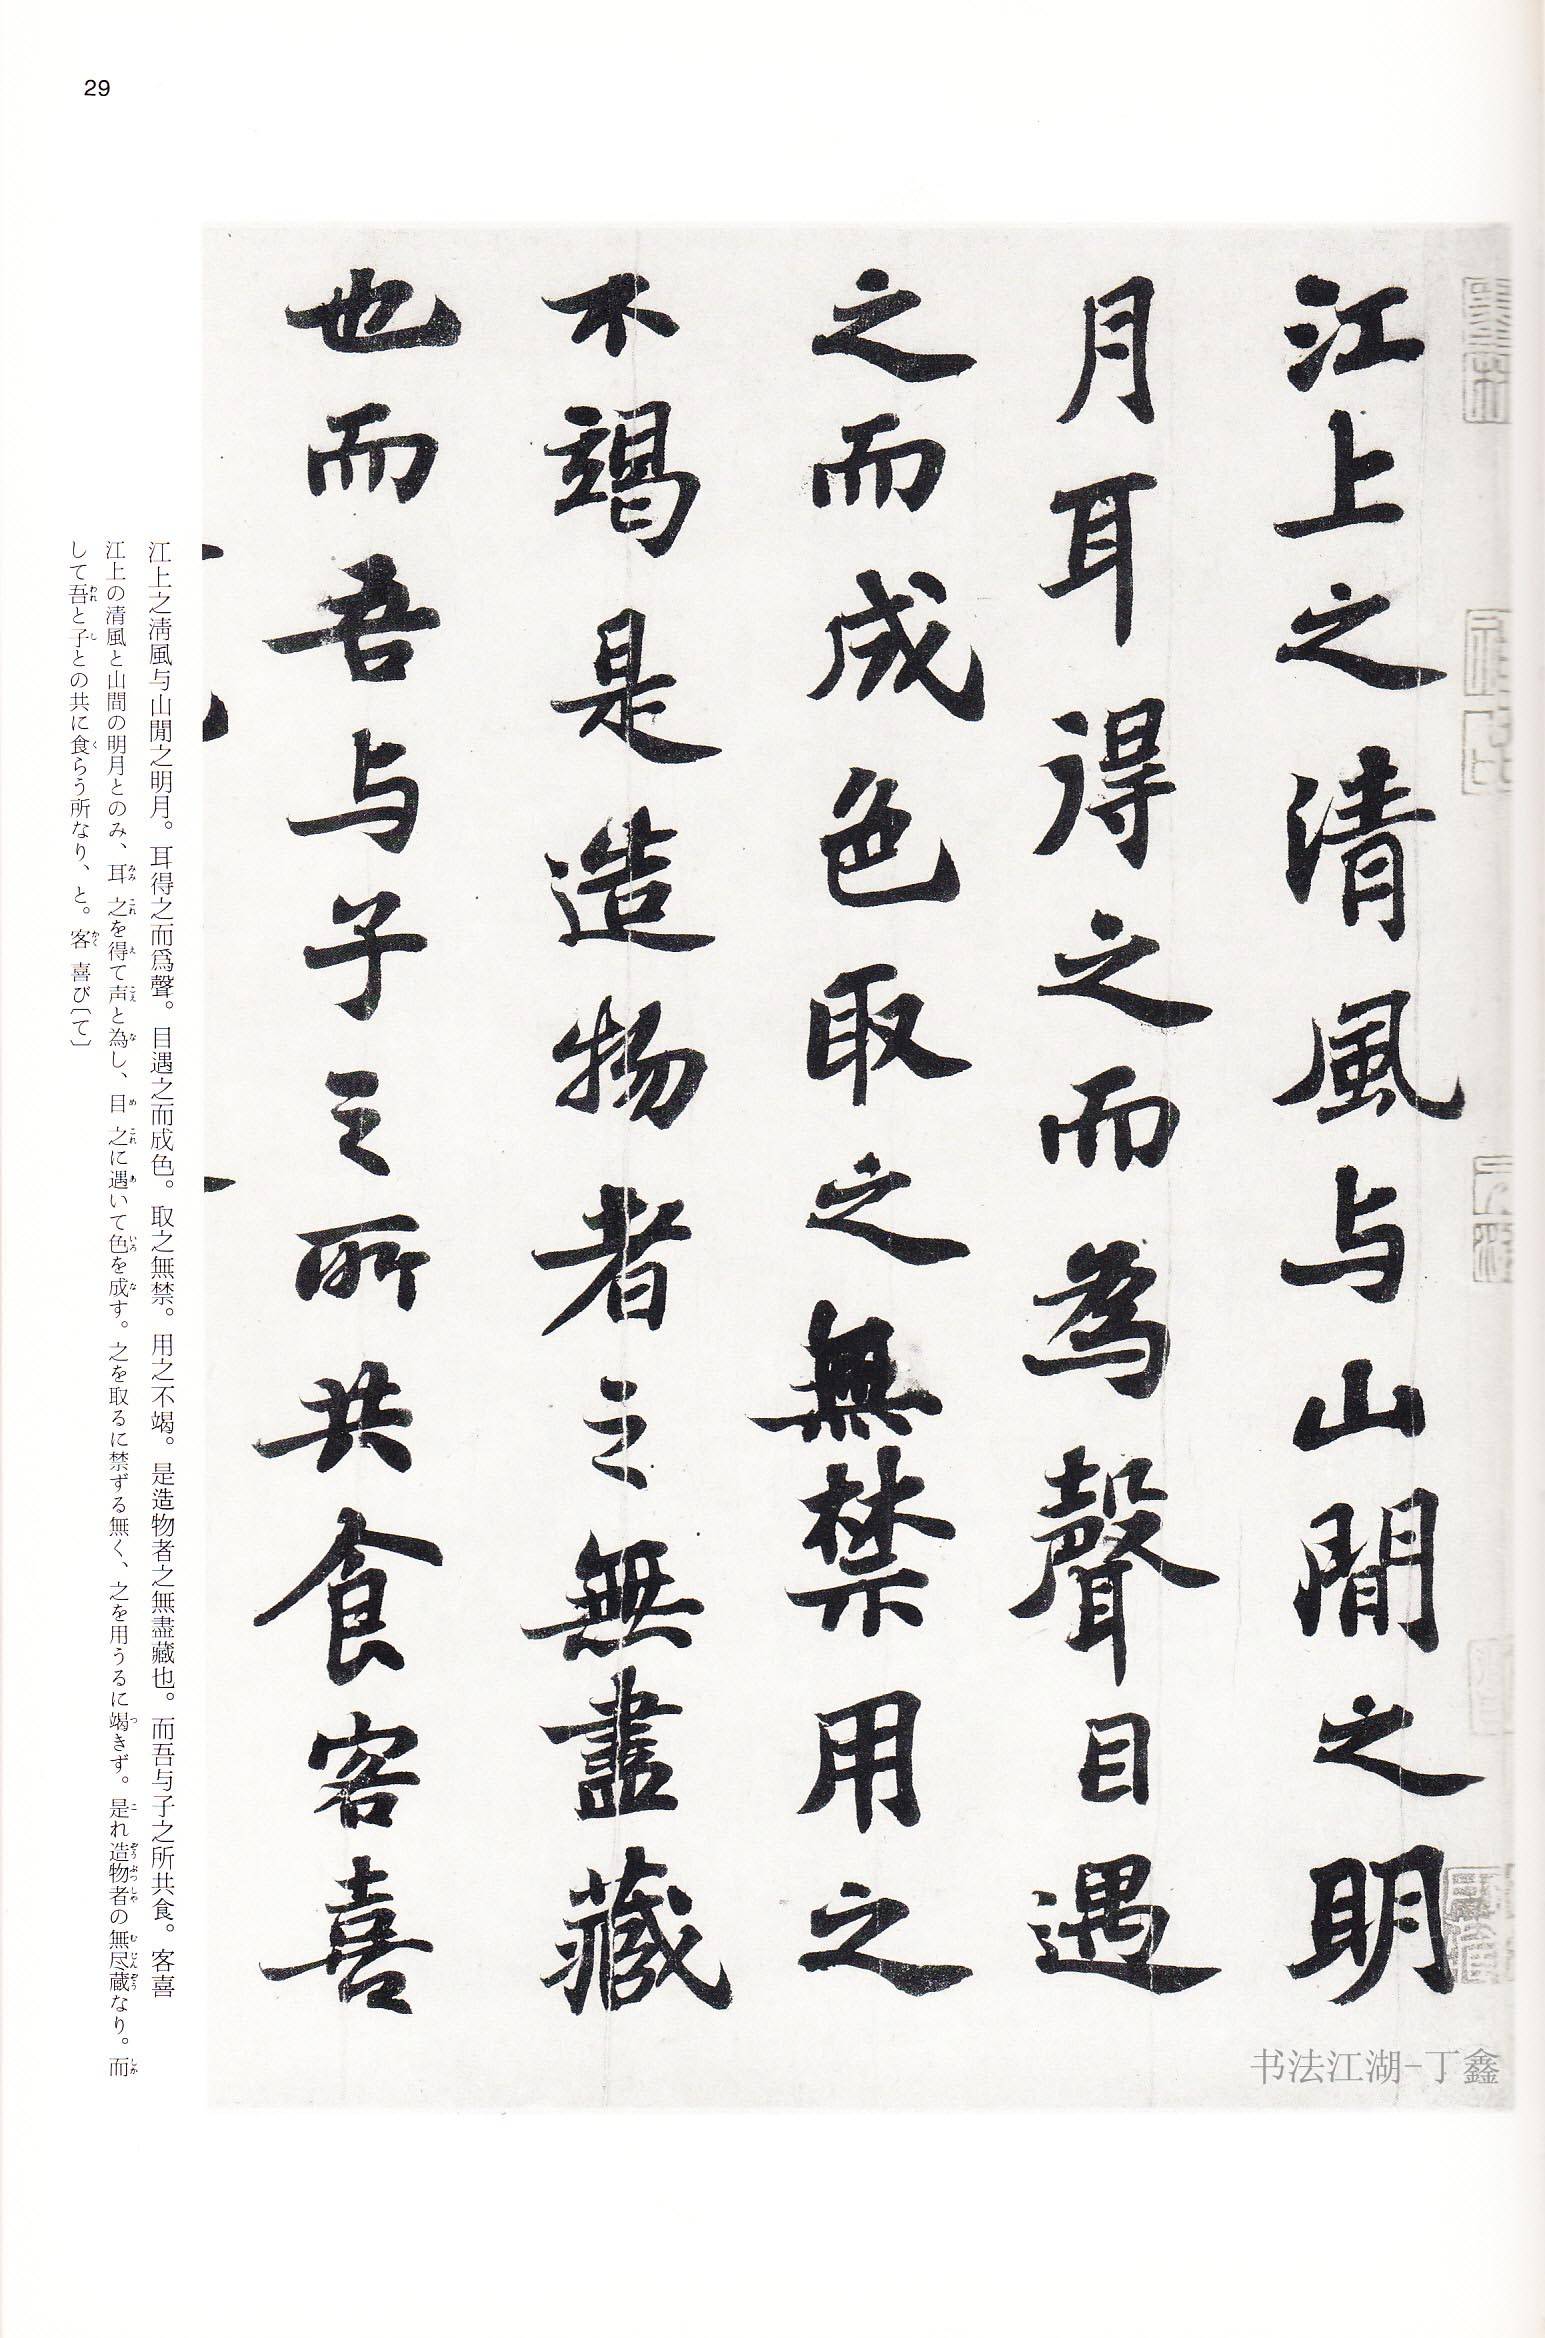 29
江上之清風与山間之明
月耳得之而為聲目遇
之而成色取之無禁用之
不竭是造物者之無盡藏
也而吾与子之所共食客喜
江上之淸風与山閒之明月。耳得之而爲聲。目遇之而成色。取之無禁。用之不竭。是造物者之無盡藏也。而吾与子之所共食。客喜
江上の清風と山間の明月とのみ、耳之を得て声と為し、目之に遇いて色を成す。之を取るに禁ずる無く、之を用うるに竭きず。是れ造物者の無尽蔵なり。而
して吾と子との共に食らう所なり、と。客喜び〔て〕
书法江湖-丁鑫